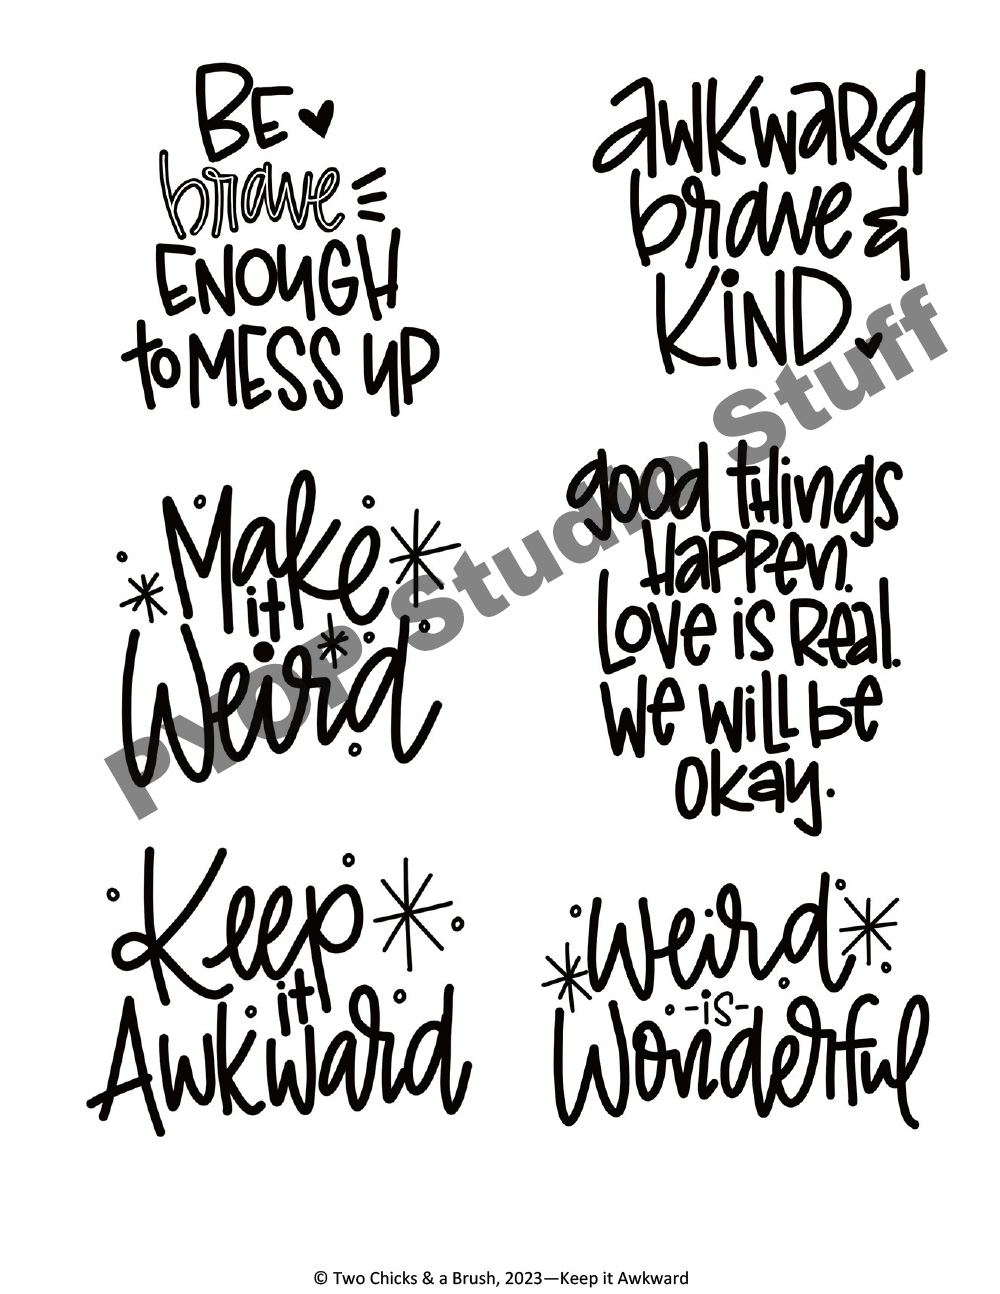 BE
brave
ENOUGH
to MESS UP
awkward
brave &
KiND
Make
it
Weird
good things
Happen.
Love is Real.
We will be
okay.
Keep
it
Awkward
Weird
-is-
Wonderful
PYOP Studio Stuff
© Two Chicks & a Brush, 2023—Keep it Awkward